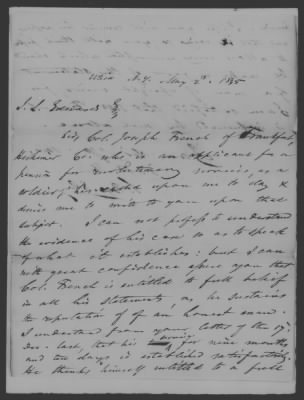 Utica N.Y. May 2d. 1835
J. L. Edwards Esq
Sir, Col. Joseph French of Frankfort,
Herkimer Co. who is an applicant for a
pension for revolutionary services, as a
soldier, has called upon me to day &
desires me to write to you upon that
subject. I can not profess to understand
the evidence of his case so as to speak
of what it establishes: but I can
with great confidence assure you that
Col. French is entitled to full belief
in all his statements, as, he sustains
the reputation of of an honest man.
I understand from your letter of the 19th
Dec. last, that his service for nine months
and two days is established satisfactorily.
He thinks himself entitled to a full